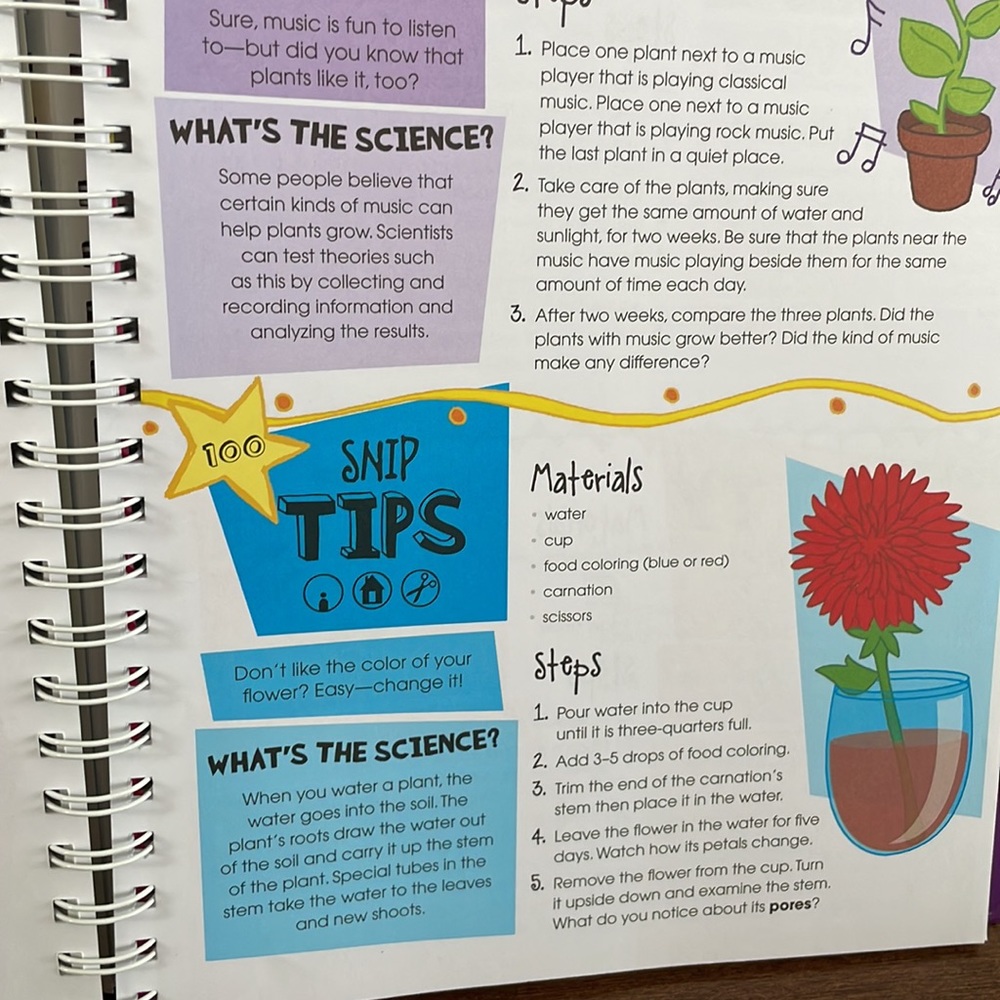 Sure, music is fun to listen
to—but did you know that
plants like it, too?
WHAT'S THE SCIENCE?
Some people believe that
certain kinds of music can
help plants grow. Scientists
can test theories such
as this by collecting and
recording information and
analyzing the results.
Steps
1. Place one plant next to a music
player that is playing classical
music. Place one next to a music
player that is playing rock music. Put
the last plant in a quiet place.
2. Take care of the plants, making sure
they get the same amount of water and
sunlight, for two weeks. Be sure that the plants near the
music have music playing beside them for the same
amount of time each day.
3. After two weeks, compare the three plants. Did the
plants with music grow better? Did the kind of music
make any difference?
100
SNIP
TIPS
Don't like the color of your
flower? Easy—change it!
WHAT'S THE SCIENCE?
When you water a plant, the
water goes into the soil. The
plant's roots draw the water out
of the soil and carry it up the stem
of the plant. Special tubes in the
stem take the water to the leaves
and new shoots.
Materials
• water
• cup
• food coloring (blue or red)
• carnation
• scissors
Steps
1. Pour water into the cup
until it is three-quarters full.
2. Add 3–5 drops of food coloring.
3. Trim the end of the carnation's
stem then place it in the water.
4. Leave the flower in the water for five
days. Watch how its petals change.
5. Remove the flower from the cup. Turn
it upside down and examine the stem.
What do you notice about its pores?